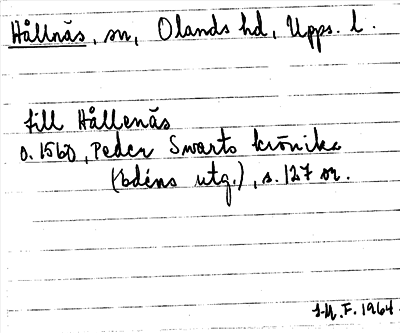 Hållnäs, sn, Olands hd, Upps. l.
till Hållenäs
o. 1560, Peder Swarts krönika
(Edéns utg.), s. 127 nr.
J.M.F. 1964.